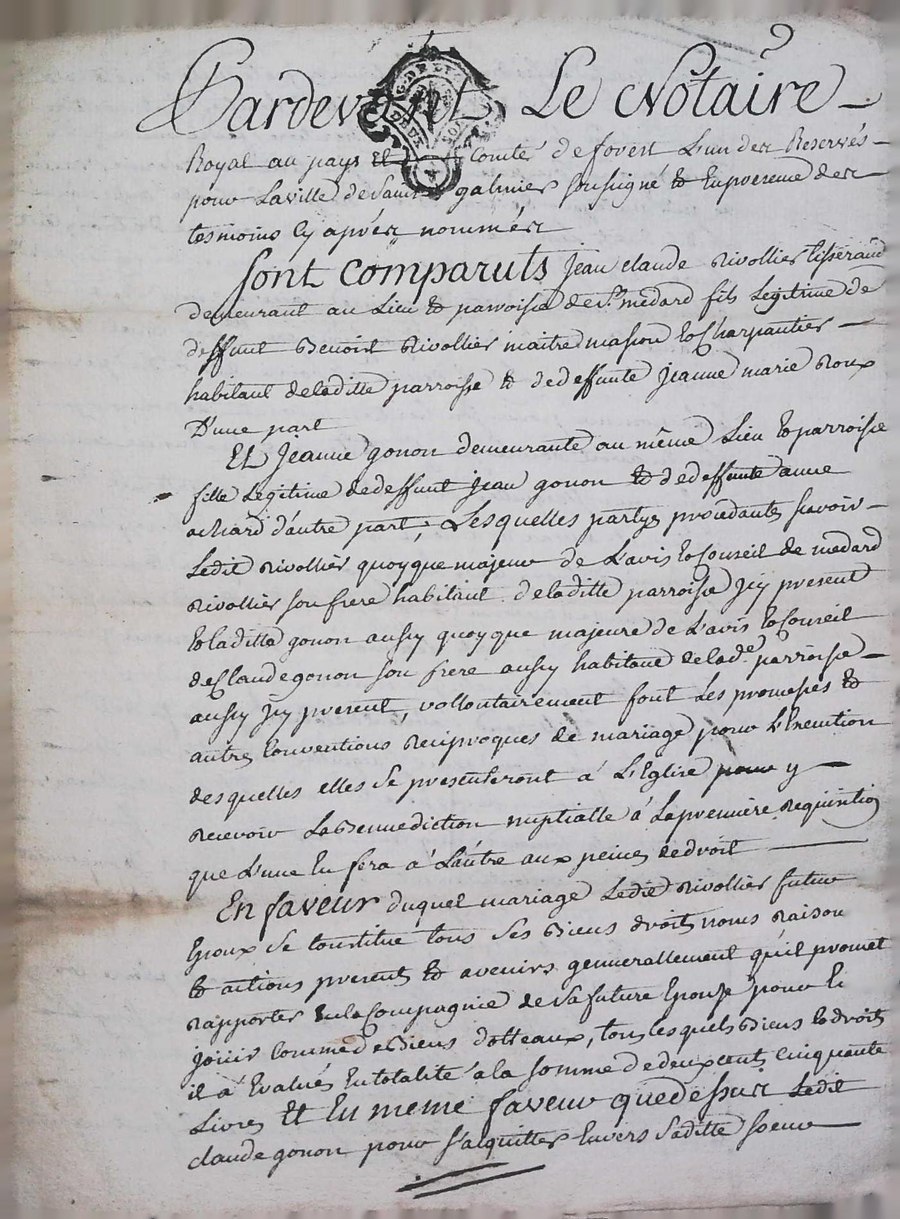 Pardevant Le Notaire
Royal au pays et Comté de forest L'un des Reservés
pour La ville de Saint galmier soussigné et En presence des
tesmoins cy aprés nommés
Sont comparuts Jean claude Rivollier tisserand
demeurant au Lieu et parroisse de St. medard fils Legitime de
deffunt Benoist Rivollier maitre masson et Charpantier
habitant de laditte parroisse et de deffunte jeanne marie Roux
D'une part
Et Jeanne gonon demeurante au même Lieu et parroisse
fille Legitime de deffunt jean gonon et de deffunte anne
achard d'autre part, Lesquelles partys procedants scavoir
Ledit Rivollier quoyque majeur de L'avis et Conseil de medard
Rivollier son frere habitant de laditte parroisse Jcy present
et laditte gonon aussy quoyque majeure de L'avis et Conseil
de Claude gonon son frere aussy habitant de lade. parroisse
aussy Jcy present, vollontairement font Les promesses et
autres Conventions Reciproques de mariage pour L'Execution
desquelles elles se presenteront à L'Eglise pour y
Recevoir La Bennediction nuptialle à La premiere Requisition
que L'une En fera à L'autre aux peines de droit
En faveur duquel mariage Ledit Rivollier futur
Epoux se constitue tous ses Biens droits noms Raison
et actions presents et avenirs gennerallement qu'il promet
rapporter En la Compagnie de sa future Epouse pour En
joüir Comme de Biens dotteaux, tous lesquels Biens et droits
il à Evalués En totalité à la somme de deux cents Cinquante
Livres Et En meme faveur que dessus Ledit
claude gonon pour s'acquitter Envers saditte soeur